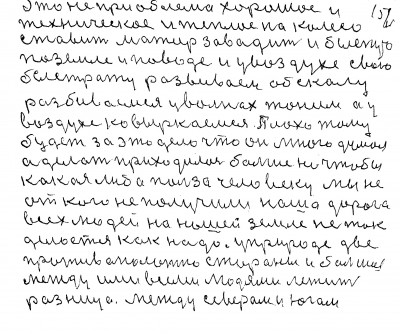 Это не проблема хорошое и 151
техническое и теплое на колесо
ставит матир заводит и билетую
поземле и поводе и увоздухе свою
билетрату развиваем об скалу
разбиваемся уволнах тоним а у
воздухе ковыркаемся. Плохо тому
будет за это дело что он много думал
а делат приходилос болше ничтобы
какая либа полза человеку мы не
от кого неполучили наша дорога
всех людей на нашей земле не так
делается как надо. уприроде две
противаположно стираны и болший
между ими всеми людями лежит
разница. между северам и югам